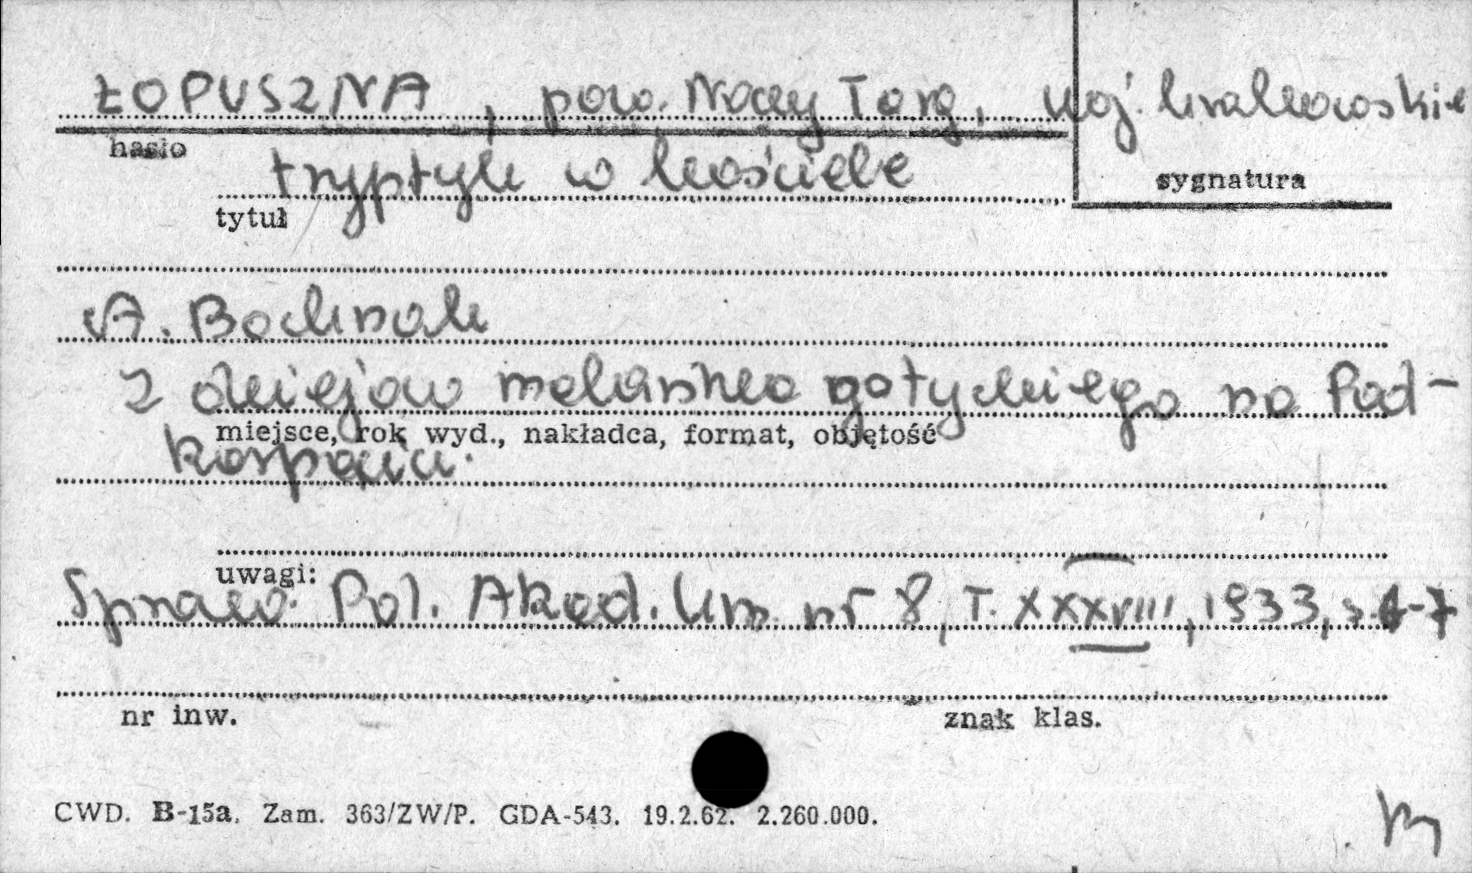 ŁOPUSZNA, pow. Nowy Targ, woj. krakowskie
hasło
tryptyk w kościele
sygnatura
tytuł
A. Bochnak
Z dziejów malarstwa gotyckiego na Pod-
miejsce, rok wyd., nakładca, format, objętość
karpaciu.
uwagi:
Spraw. Pol. Akad. Um. nr 8, T. XXXVIII, 1933, s. 4-7
nr inw.
znak klas.
CWD. B-15a. Zam. 363/ZW/P. GDA-543. 19.2.62. 2.260.000.